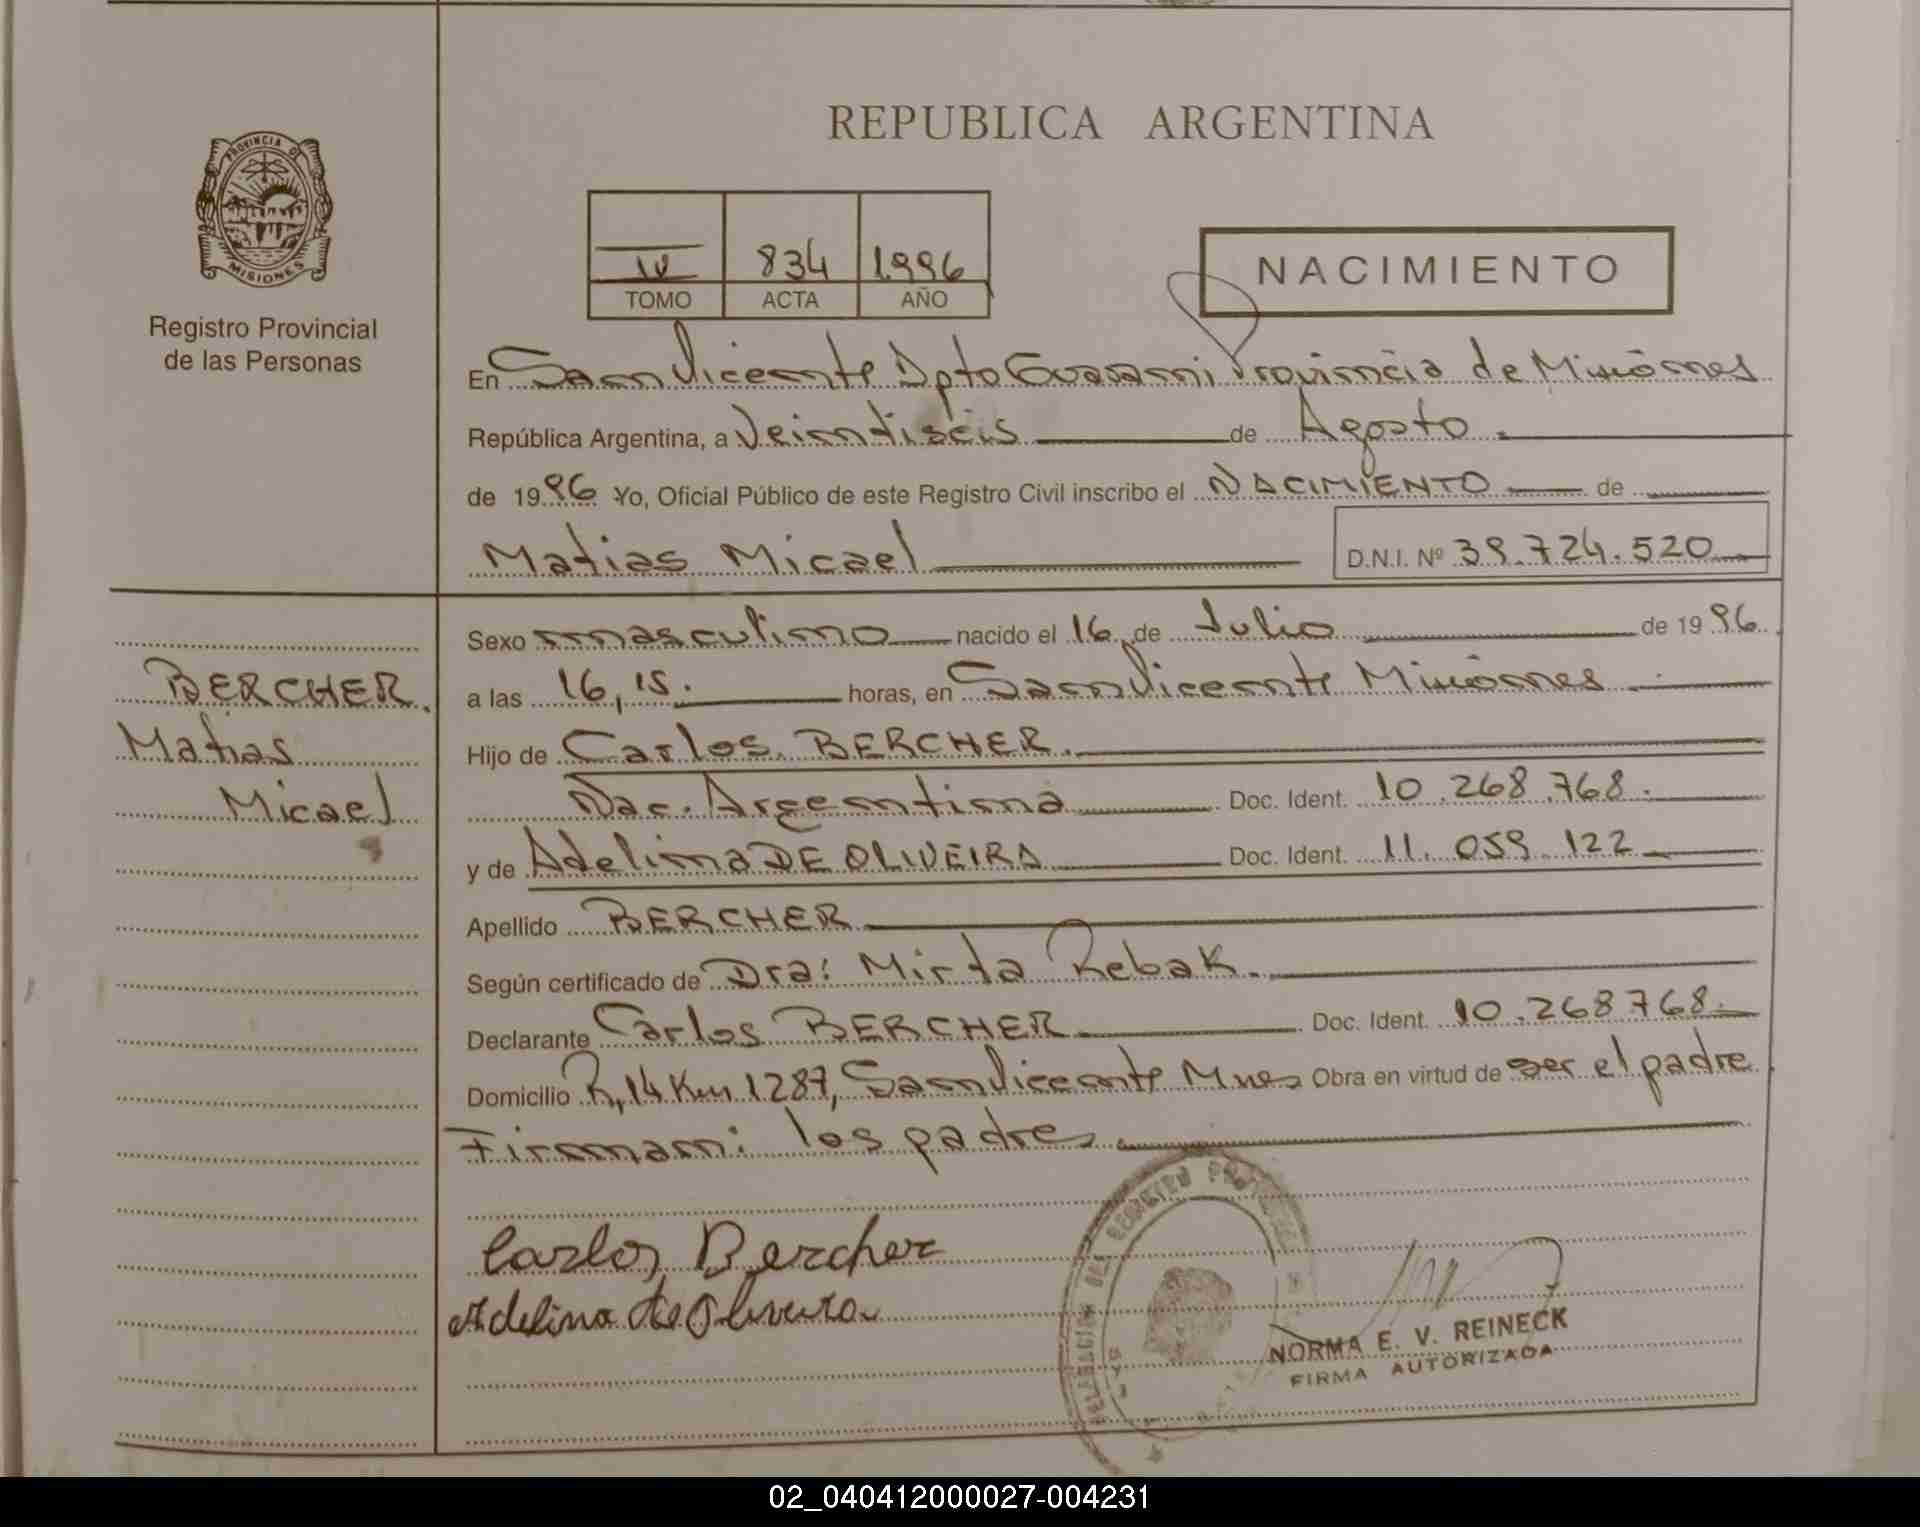 REPUBLICA ARGENTINA
PROVINCIA DE
MISIONES
Registro Provincial
de las Personas
IV 834 1.996
TOMO ACTA AÑO
NACIMIENTO
En San Vicente Dpto Guarani Provincia de Misiones
República Argentina, a Veintiséis de Agosto.
de 1996 Yo, Oficial Público de este Registro Civil inscribo el NACIMIENTO de
Matias Micael D.N.I. Nº 39.724.520
BERCHER.
Matias
Micael
Sexo masculino nacido el 16 de Julio de 1996.
a las 16,15. horas, en San Vicente Misiones
Hijo de Carlos BERCHER.
Nac. Argentina Doc. Ident. 10.268.768.
y de Adelina DE OLIVEIRA Doc. Ident. 11.059.122
Apellido BERCHER
Según certificado de Dra: Mirta Rebak.
Declarante Carlos BERCHER Doc. Ident. 10.268768.
Domicilio R,14 Km 1287, San Vicente Mnes Obra en virtud de ser el padre.
Firman: los padres
Carlos Bercher
Adelina de Oliveira
DEL REGISTRO
NORMA E. V. REINECK
FIRMA AUTORIZADA
02_040412000027-004231